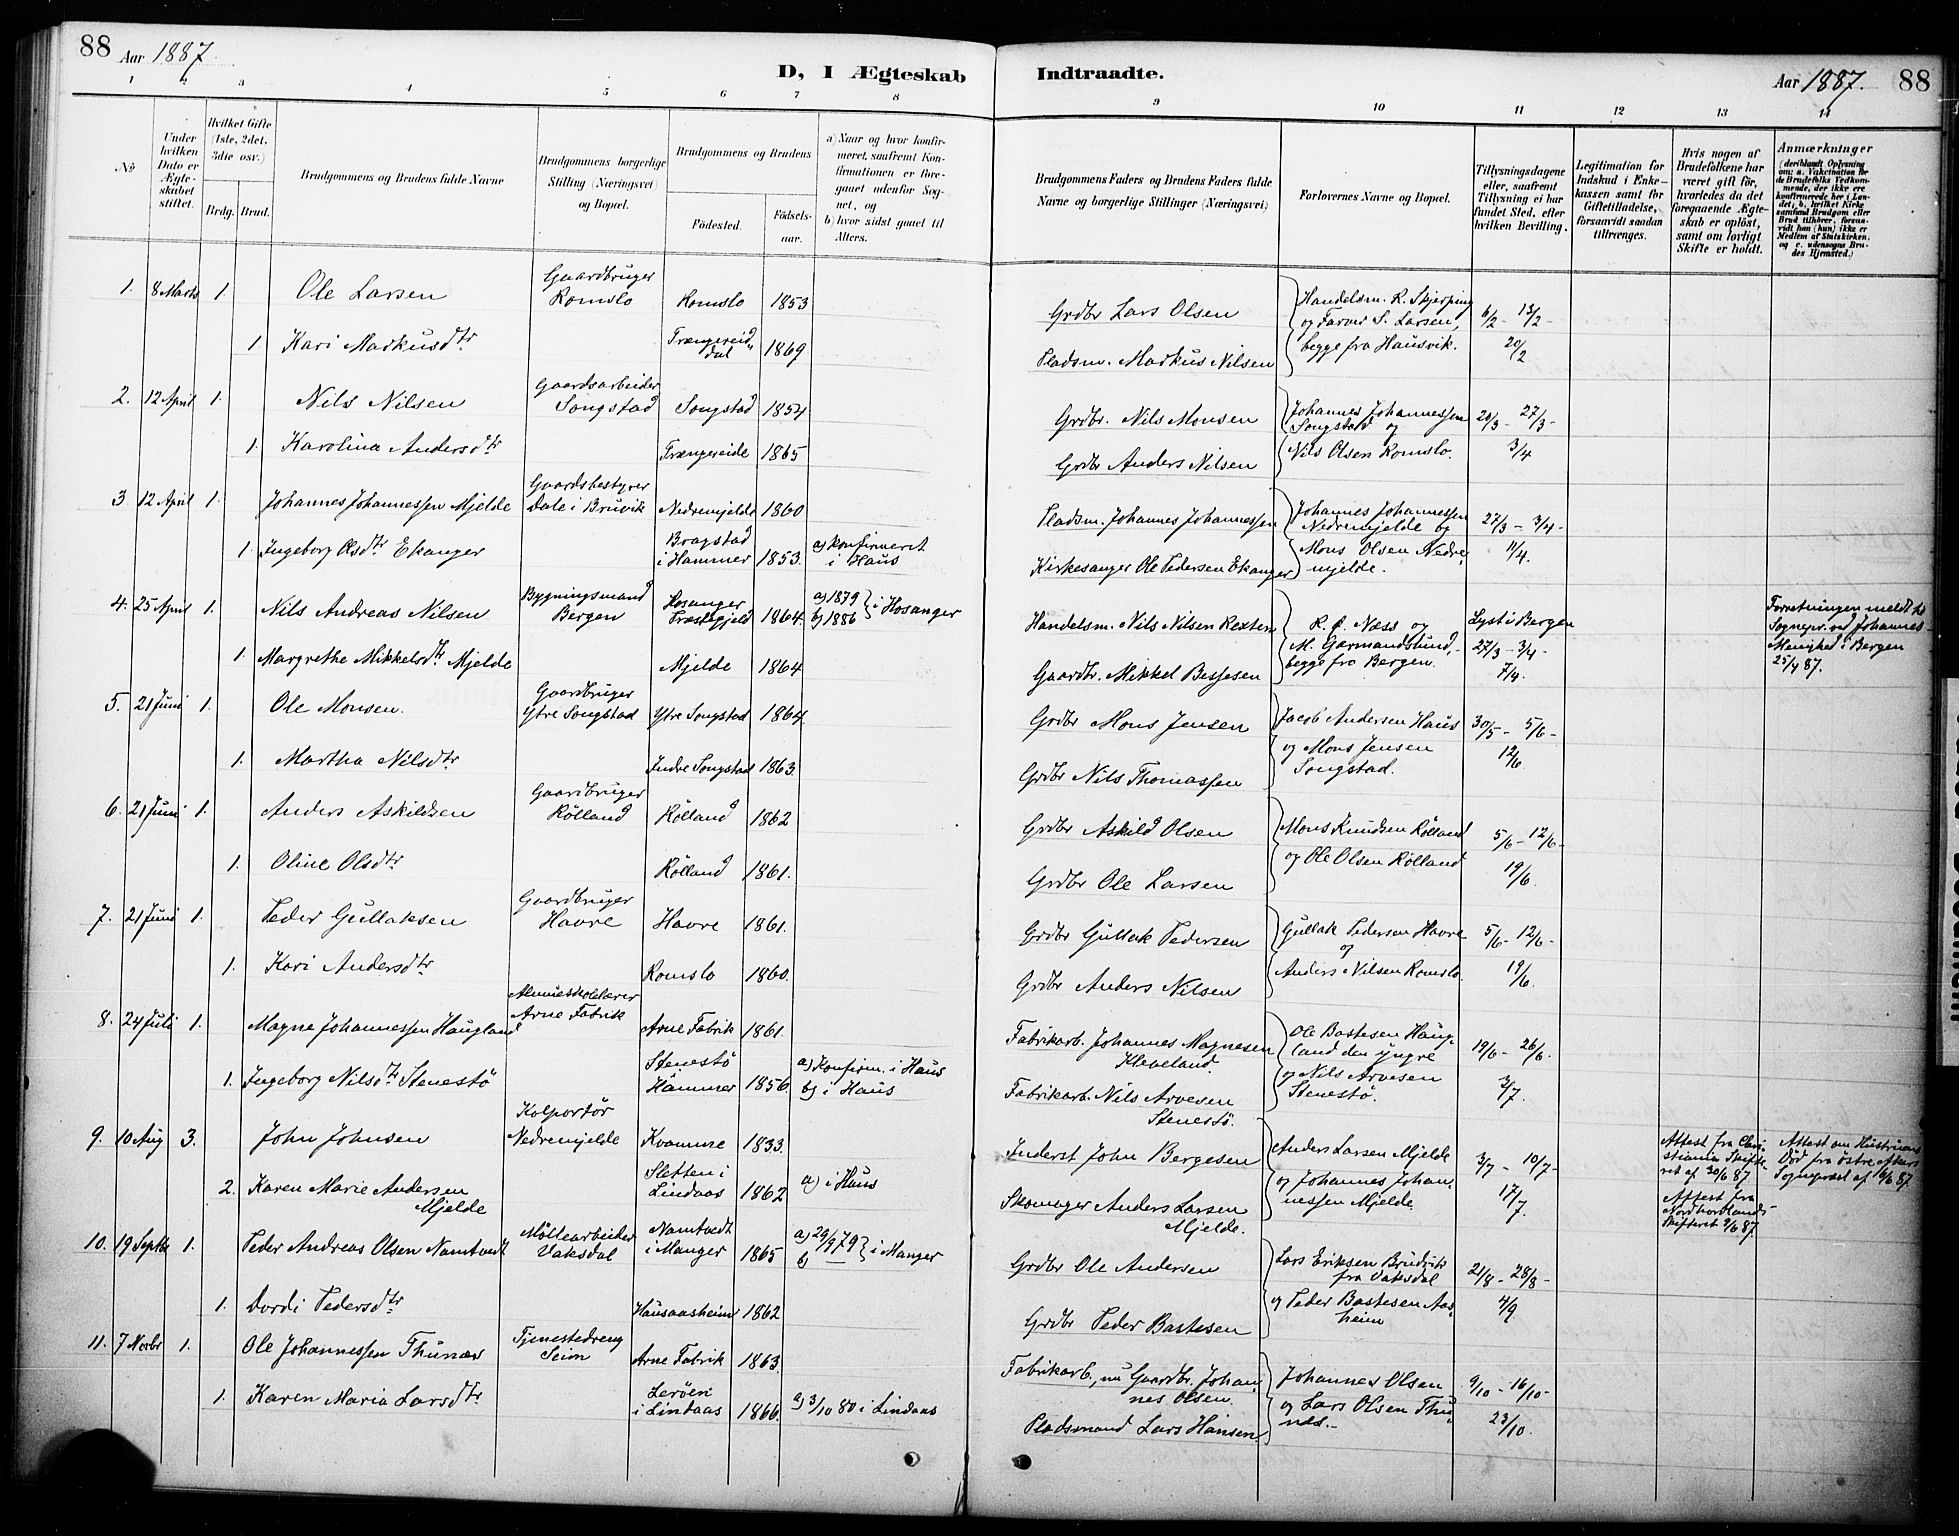 88
Aar 1887.
D, I Ægteskab
1
2
3
4
5
6
7
8
№
Under hvilken Dato er Ægteskabet stiftet.
Hvilket Gifte (1ste, 2det, 3die osv.)
Brdg.
Brud.
Brudgommens og Brudens fulde Navne
Brudgommens borgerlige Stilling (Næringsvei) og Bopæl.
Brudgommens og Brudens
Fødested.
Fødselsaar.
a) Naar og hvor konfirmeret, saafremt Konfirmationen er foregaaet udenfor Sognet, og
b) hvor sidst gaaet til Alters.
Indtraadte.
Aar 1887.
88
9
10
11
12
13
14
Brudgommens Faders og Brudens Faders fulde Navne og borgerlige Stillinger (Næringsvei)
Forlovernes Navne og Bopæl.
Tillysningsdagene eller, saafremt Tillysning ei har fundet Sted, efter hvilken Bevilling.
Legitimation for Indskud i Enkekassen samt for Giftetilladelse, forsaavidt saadan tiltrænges.
Hvis nogen af Brudefolkene har været gift før, hvorledes da det foregaaende Ægteskab er opløst, samt om lovligt Skifte er holdt.
Anmærkninger
(deriblandt Oplysning om: a. Vakcination for de Brudefolks Vedkommende, der ikke ere konfirmerede her i Landet; b. hvilket Kirkesamfund Brudgom eller Brud tilhører, forsaavidt han (hun) ikke er Medlem af Statskirken, og c. udensogns Brudes Hjemsted.)
1. 8 Marts 1. Ole Larsen Gaardbruger Romslo Romslo 1853 Grdbr Lars Olsen Handelsm. R. Skjerping og Farver S. Larsen, begge fra Hausvik. 6/2 - 13/2 - 20/2
1 Kari Markusdtr Trængereid dal 1869 Pladsm. Markus Nilsen
2. 12 April 1. Nils Nilsen Gaardsarbeider Songstad Songstad 1854 Grdbr. Nils Monsen Johannes Johannessen Songstad og Nils Olsen Romslo. 20/3 - 27/3 - 3/4
1. Karolina Andersdtr Trængereide 1865 Grdbr Anders Nilsen
3 12 April 1. Johannes Johannessen Mjelde Gaardsbestyrer Dale i Bruvik Nedremjelde 1860 Pladsm. Johannes Johannessen Johannes Johannessen Nedremjelde og Mons Olsen Nedremjelde. 27/3 - 3/4 - 11/4.
1. Ingeborg Olsdtr Ekanger Bragstad i Hammer 1853. a) konfirmeret i Haus Kirkesanger Ole Pedersen Ekanger
4. 25 April 1. Nils Andreas Nilsen Bygningsmand Bergen Hosanger Præstegjeld 1864. a) 1879 b) 1886 } i Hosanger Handelsm. Nils Nilsen Rexten R. C. Næss og M. Garmandslund, begge fra Bergen. Lyst i Bergen 27/3 - 3/4 - 7/4. Forretningen meldt to Sognepr. ved Johannes Menighed i Bergen 25/4 87.
1. Margrethe Mikkelsdtr Mjelde Mjelde 1864 Gaardbr. Mikkel Bessesen
5. 21 Juni 1. Ole Monsen. Gaardbruger Ytre Songstad Ytre Songstad 1864. Grdbr Mons Jensen Jacob Andersen Haus og Mons Jensen Songstad. 30/5 - 5/6 - 12/6.
1. Martha Nilsdtr Indre Songstad 1863. Grdbr Nils Thomassen
6. 21 Juni 1. Anders Askildsen Gaardbruger Rølland Rølland 1862 Grdbr Askild Olsen Mons Knudsen Rølland og Ole Olsen Rølland 5/6 - 12/6 - 19/6.
1. Oline Olsdtr Rølland 1861. Grdbr Ole Larsen
7. 21 Juni 1. Peder Gullaksen Gaardbruger Havre Havre 1861. Grdbr Gullak Pedersen Gullak Pedersen Havre og Anders Nilsen Romslo. 5/6 - 12/6 - 19/6.
1. Kari Andersdtr Romslo 1860. Grdbr Anders Nilsen
8. 24 Juli 1. Magne Johannessen Haugland Almueskolelærer Arne Fabrik Arne Fabrik 1861. Fabrikarb. Johannes Magnesen Kleveland. Ole Bastesen Haugland den yngre og Nils Arvesen Stenestø. 19/6 - 26/6. 3/7.
1. Ingeborg Nilsdtr Stenestø Stenestø Hammer 1856. a) Konfirm. i Haus b) i Haus Fabrikarb. Nils Arvesen Stenestø.
9. 10 Aug 3. John Johnsen Kolportør Nedremjelde Kvamme 1833. Inderst John Bergesen Anders Larsen Mjelde og Johannes Johannessen Mjelde. 3/7 - 10/7 - 17/7. Attest fra Christiania Skifteret af 30/6 87. Attest fra Nordhordlands Skifteret 9/6 87. Attest om Hustruens Død fra Østre Akers Sognepræst af 16/6 87.
2. Karen Marie Andersen Mjelde Sletten i Lindaas 1862. a) i Haus Skomager Anders Larsen Mjelde.
10. 19 Septbr 1. Peder Andreas Olsen Namtvedt Møllearbeider Vaksdal Namtvedt i Manger 1865 a) 29/9 79 b) — } i Manger Grdbr Ole Andersen Lars Eriksen Brudvik fra Vaksdal og Peder Bastesen Aasheim 21/8 - 28/8 - 4/9
1. Dordi Pedersdtr Hausaasheim 1862 Grdbr Peder Bastesen
11. 7 Novbr 1. Ole Johannessen Thunæs Tjenestedreng Seim Arne Fabrik 1863. Fabrikarb., nu Gaardbr. Johannes Olsen. Johannes Olsen og Lars Olsen Thunæs. 9/10 - 16/10 - 23/10.
1. Karen Maria Larsdtr Lerøen i Lindaas 1866. a) 3/10 80 i Lindaas Pladsmand Lars Hansen